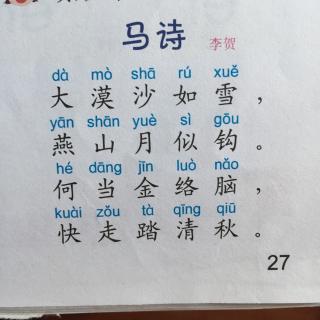 马诗 李贺
dà mò shā rú xuě
大漠沙如雪，
yān shān yuè sì gōu
燕山月似钩。
hé dāng jīn luò nǎo
何当金络脑，
kuài zǒu tà qīng qiū
快走踏清秋。
27